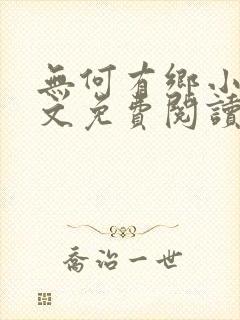 無何有鄉小
文免費閱讀
喬治一世